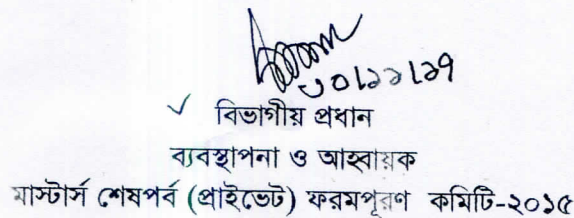 ৩০/১১/১৭
✓ বিভাগীয় প্রধান
ব্যবস্থাপনা ও আহ্বায়ক
মাস্টার্স শেষপর্ব (প্রাইভেট) ফরমপূরণ কমিটি-২০১৫